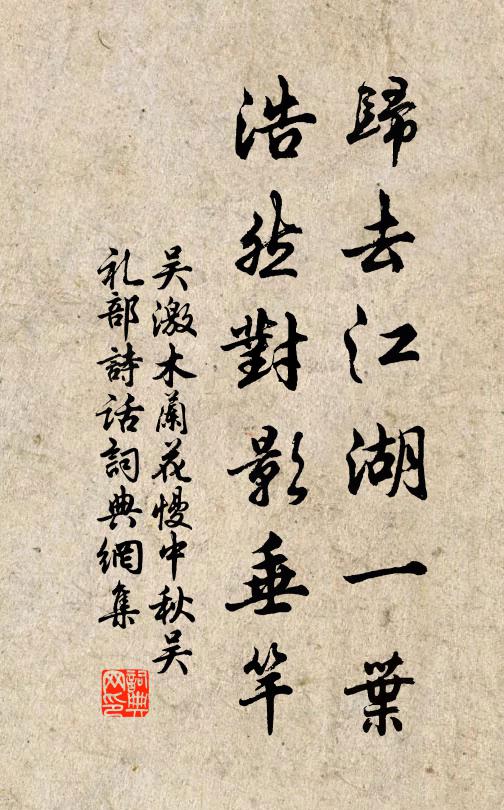 歸去江湖一葉
浩然對影垂竿
吴激木蘭花慢中秋吴
礼部詩话詞典網集
詞典网印